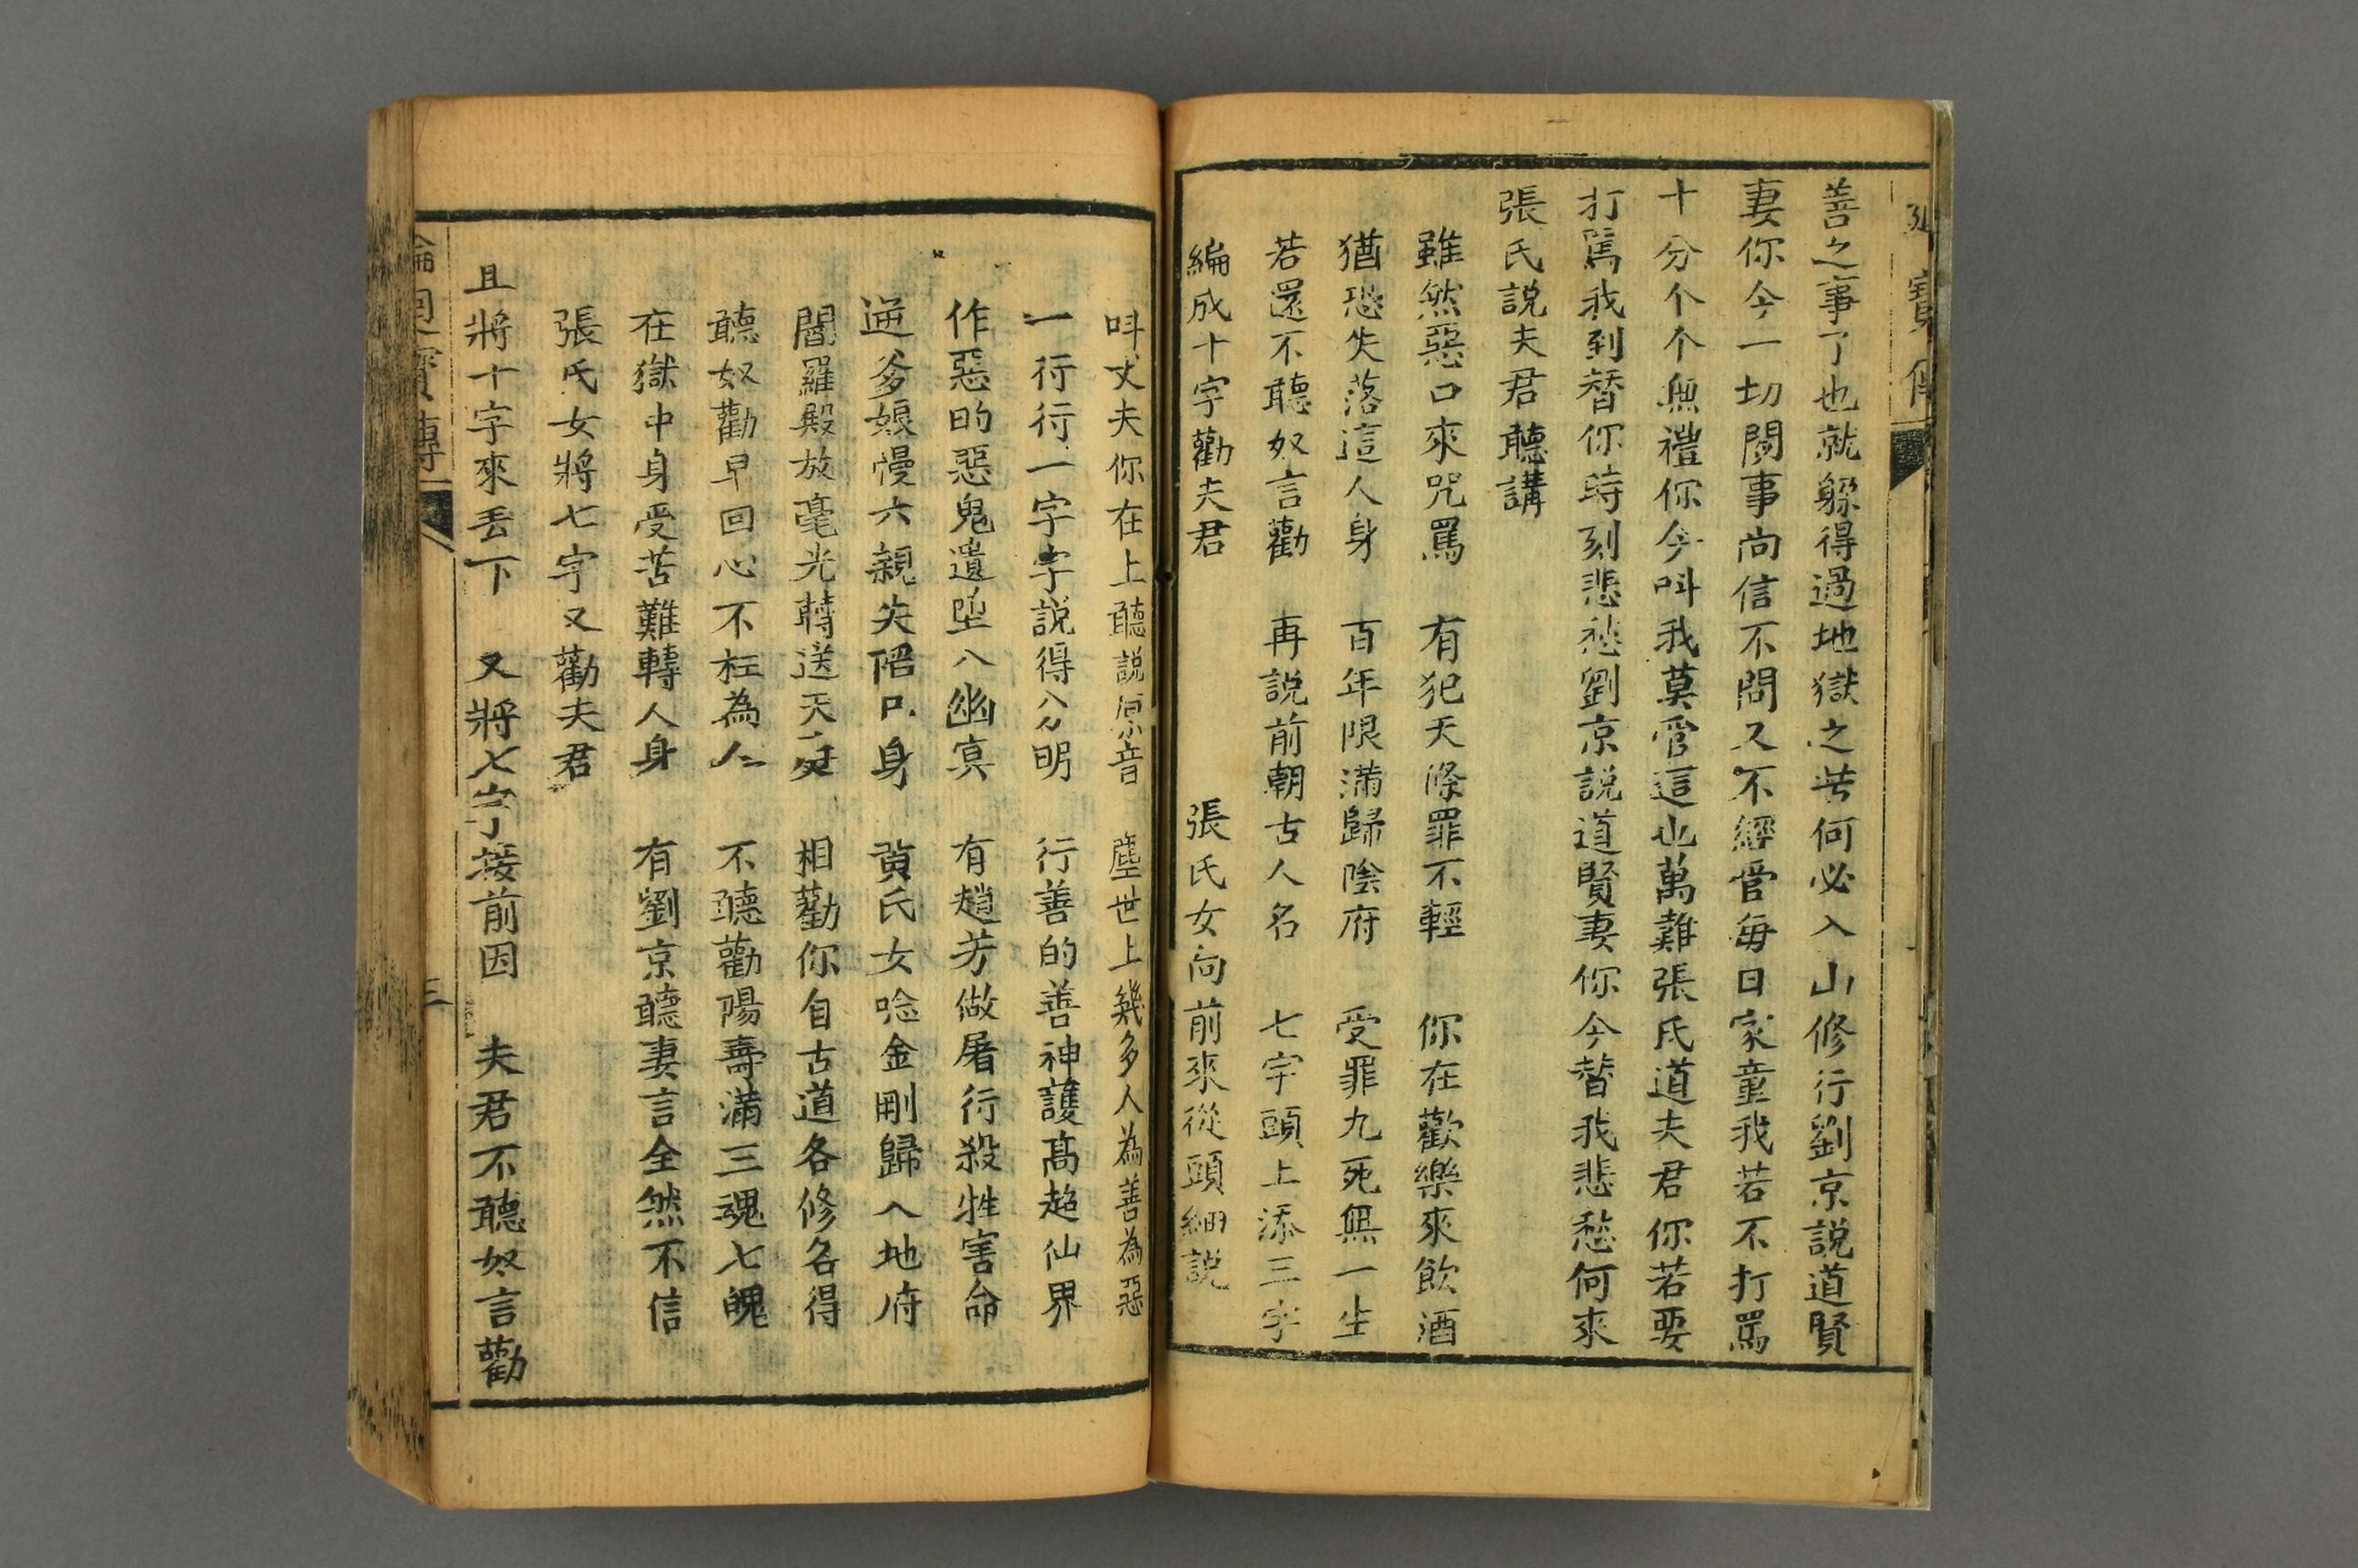 寶傳
善之事了也就躲得過地獄之苦何必入山修行劉京說道賢
妻你今一切閒事尚信不問又不經管每日家童我若不打罵
十分个个無禮你今呌我莫管這也萬難張氏道夫君你若要
打罵我到替你時刻悲愁劉京說道賢妻你今替我悲愁何來
張氏說夫君聽講
雖然惡口來咒罵　有犯天條罪不輕　你在歡樂來飲酒
猶恐失落這人身　百年限滿歸陰府　受罪九死無一生
若還不聽奴言勸　再說前朝古人名　七字頭上添三字
編成十字勸夫君　張氏女向前來從頭細說
呌丈夫你在上聽說原音　塵世上幾多人為善為惡
一行行一字字說得分明　行善的善神護高超仙界
作惡的惡鬼遣墮入幽冥　有趙芳做屠行殺牲害命
逆爹娘慢六親失陷身　黃氏女唸金剛歸入地府
閻羅殿放毫光轉送天　相勸你自古道各修各得
聽奴勸早回心不枉為人　不聽勸陽壽滿三魂七魄
在獄中身受苦難轉人身　有劉京聽妻言全然不信
張氏女將七字又勸夫君
且將十字來丟下　又將七字接前因　夫君不聽奴言勸
輪囘寶傳　三